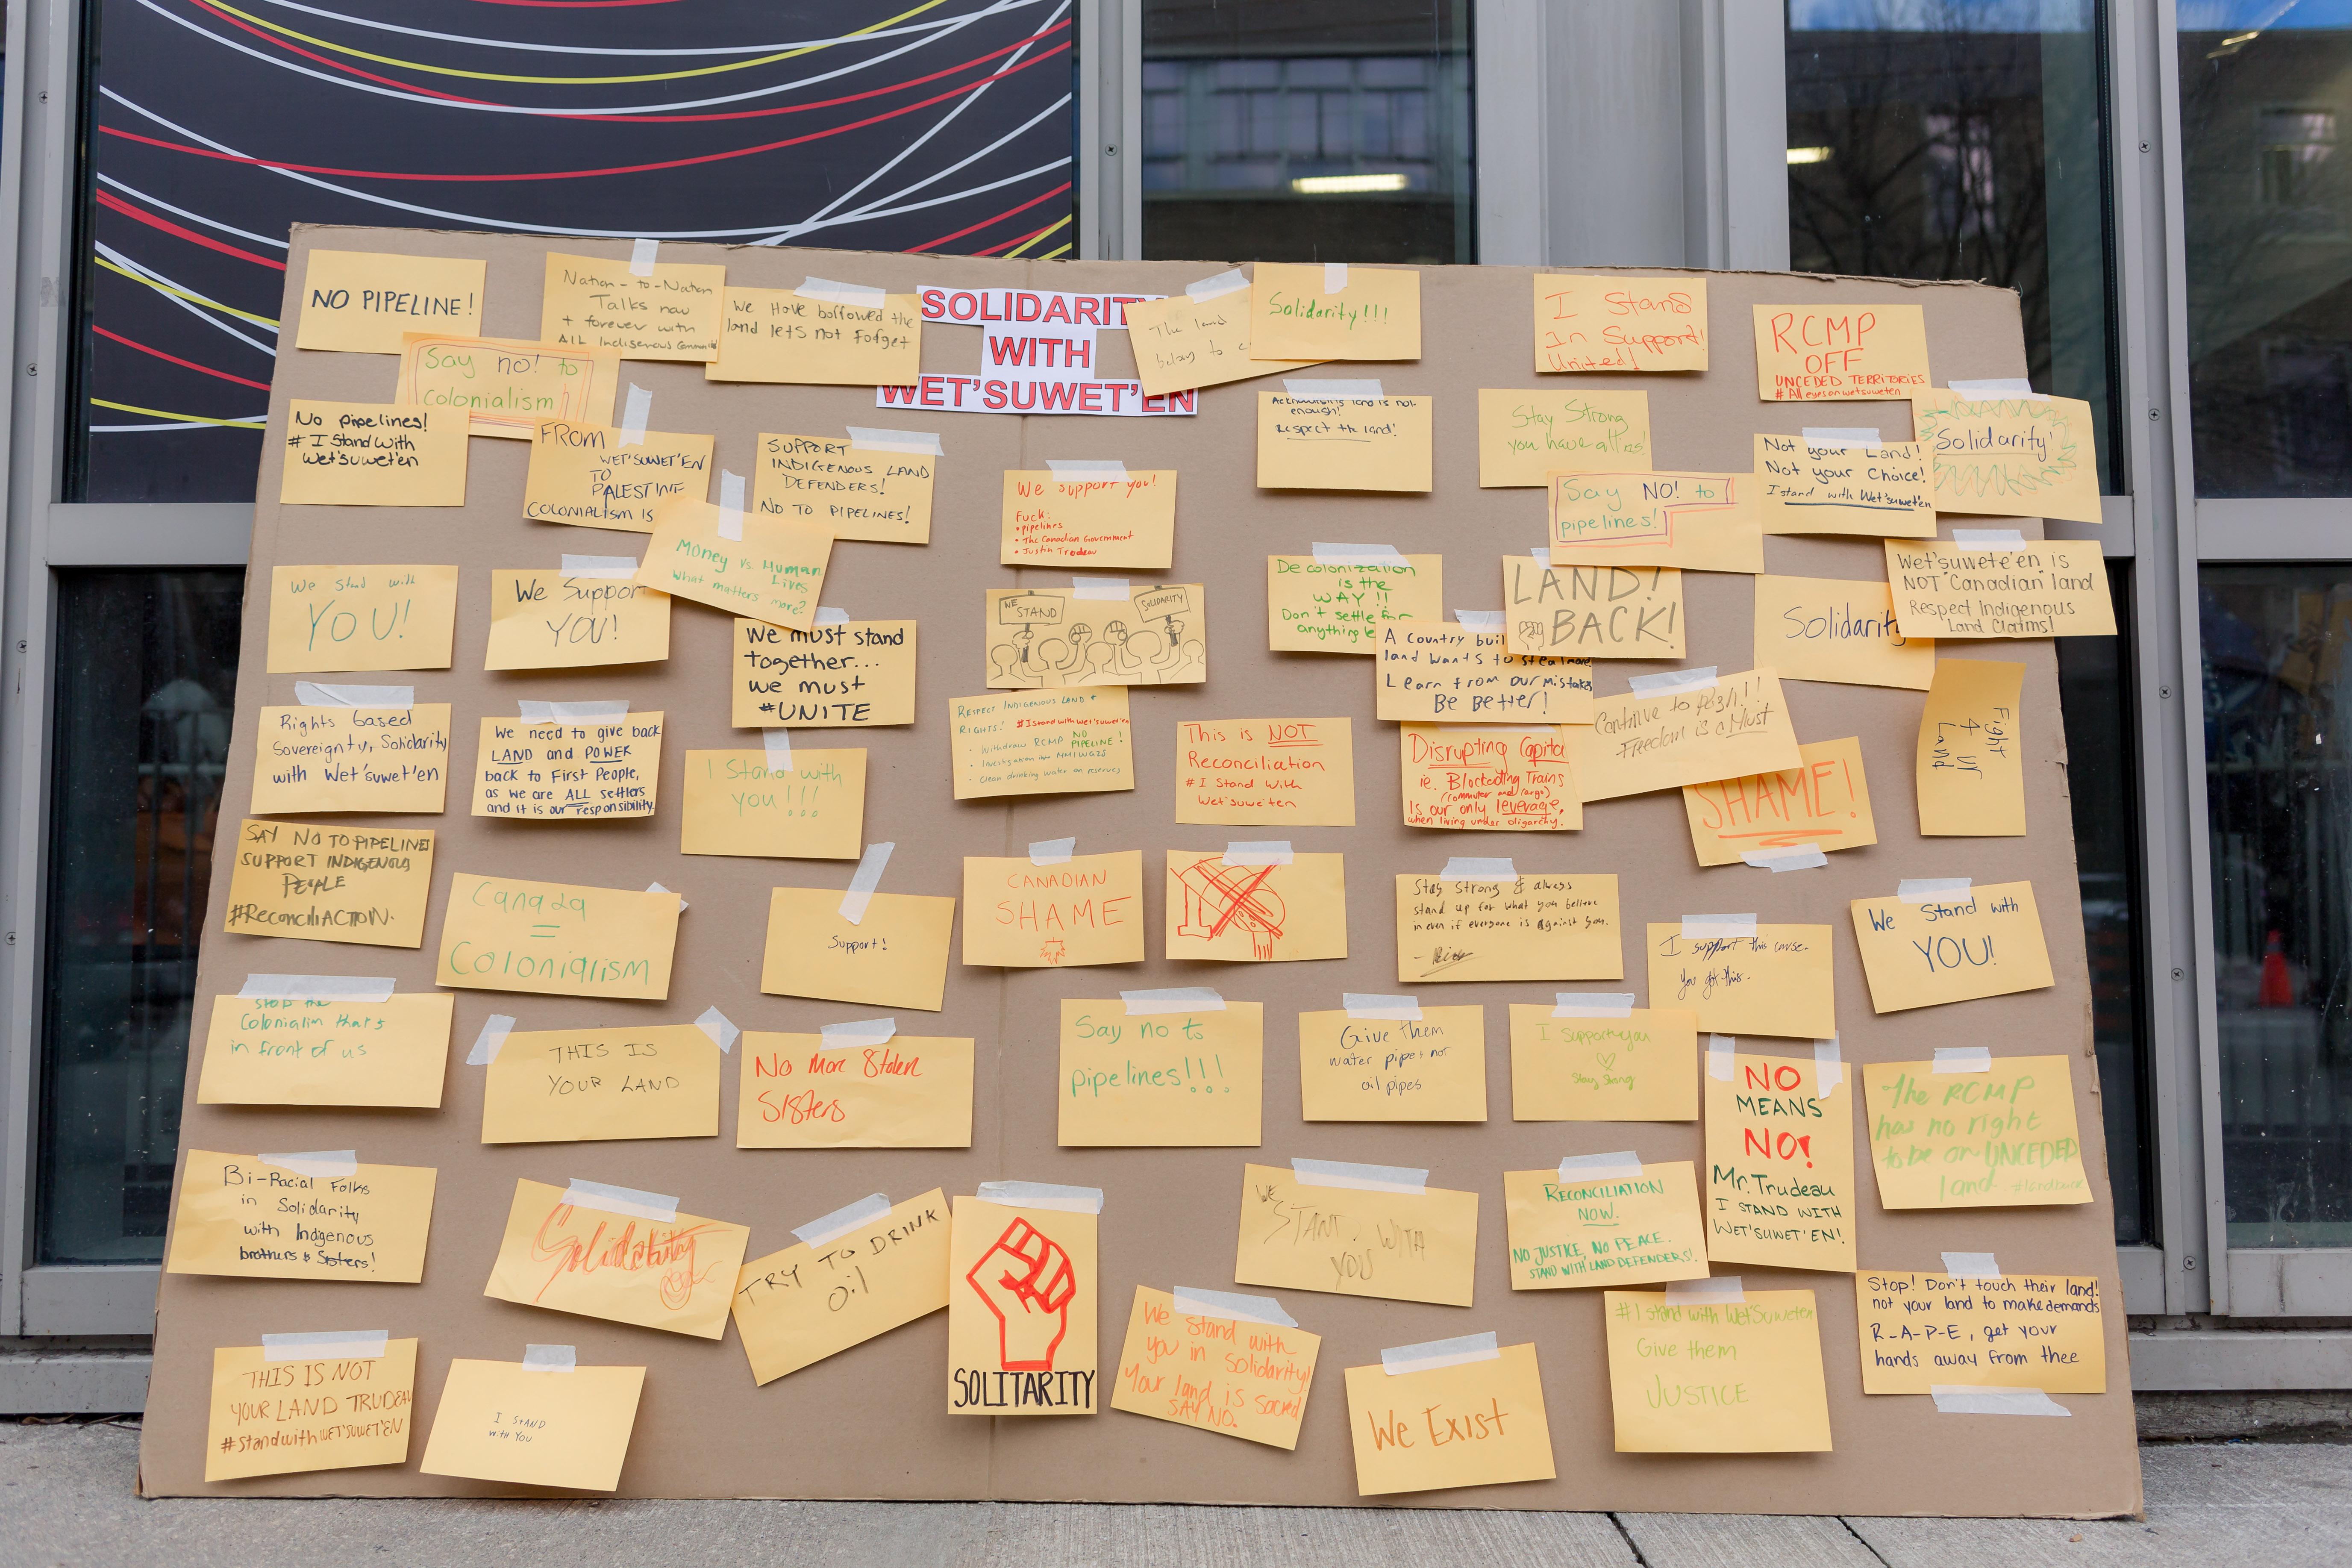 NO PIPELINE!
Nation-to-Nation
Talks now
+ forever with
ALL Indigenous
We Have borrowed the
land lets not forget
SOLIDARITY
WITH
WET'SUWET'EN
The land
belong to
Solidarity!!!
I Stand
In Support!
United!
RCMP
OFF
UNCEDED TERRITORIES
#Alleyesonwetsuweten
Say no! to
colonialism
No pipelines!
# I Stand with
Wet'suwet'en
FROM
WET'SUWET'EN
TO
PALESTINE
COLONIALISM IS
SUPPORT
INDIGENOUS LAND
DEFENDERS!
NO TO PIPELINES!
We support you!
Fuck:
• pipelines
• The Canadian Government
• Justin Trudeau
Acknowledging land is not
enough!
Respect the land!
Stay Strong
you have all
Say NO! to
pipelines!
Not your Land!
Not your Choice!
I stand with Wet'suwet'en
Solidarity!
We stand with
YOU!
We Support
YOU!
Money vs. Human
Lives
What matters more?
We must stand
together...
we must
#UNITE
WE
STAND
SOLIDARITY
Decolonization
is the
WAY!!
Don't settle for
anything
LAND!
BACK!
A country
land wants to steal more
Learn from our mistakes
Be Better!
Solidarity
Wet'suwete'en is
NOT Canadian land
Respect Indigenous
Land Claims!
Rights based
Sovereignty, Solidarity
with Wet'suwet'en
We need to give back
LAND and POWER
back to First People,
as we are ALL settlers
and it is our responsibility.
I Stand with
you!!!
RESPECT INDIGENOUS LAND +
RIGHTS! #Istandwithwet'suwet'en
• Withdraw RCMP NO
PIPELINE!
• Investigation into MMIWG2S
• Clean drinking water on reserves
This is NOT
Reconciliation
# I Stand With
Wet'suwe'ten
Disrupting Capital
ie. Blockading Trains
(commuter and cargo)
Is our only leverage,
when living under oligarchy.
Continue to
Freedom is a Must
SHAME!
Fight
4 ur
Land
SAY NO TO PIPELINES
SUPPORT INDIGENOUS
PEOPLE
#ReconciliACTION.
Canada
=
Colonialism
Support!
CANADIAN
SHAME
Stay strong & always
stand up for what you believe
in even if everyone is against you.
I support this cause.
You got this.
We Stand with
YOU!
Stop the
Colonialim that's
in front of us
THIS IS
YOUR LAND
No More Stolen
Sisters
Say no to
pipelines!!!
Give them
water pipes not
oil pipes
I Support you
Stay Strong
NO
MEANS
NO!
Mr. Trudeau
I STAND WITH
WET'SUWET'EN!
The RCMP
has no right
to be on UNCEDED
land. #landback
Bi-Racial Folks
in Solidarity
with Indgenous
brothers & Sisters!
Solidarity
TRY TO DRINK
Oil
SOLITARITY
WE
STANT WITH
YOU
RECONCILIATION
NOW.
NO JUSTICE, NO PEACE.
STAND WITH LAND DEFENDERS!
Stop! Don't touch their land!
not your land to make demands
R-A-P-E, get your
hands away from thee
THIS IS NOT
YOUR LAND TRUDEAU
#StandwithWET'SUWET'EN
I STAND
WITH YOU
We stand with
you in Solidarity!
Your land is Sacred
SAY NO.
We Exist
#I stand with Wet'Suweten
Give them
JUSTICE